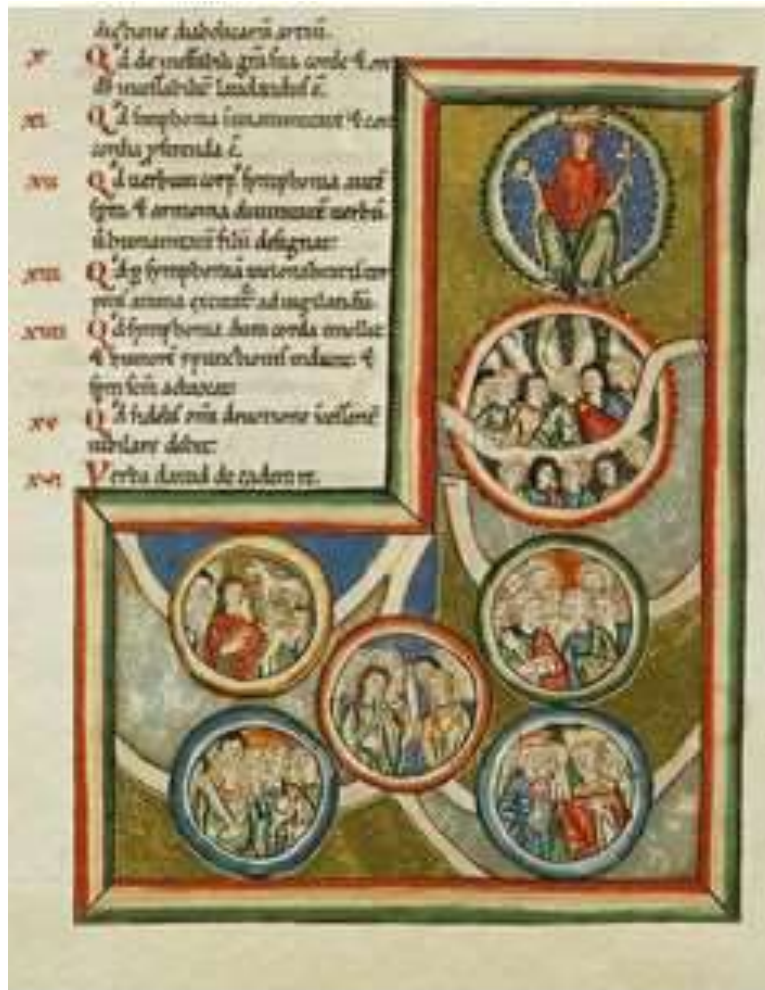 diabolicarū artiū.
x Qd de ineffabili grā sua corde &
ds ineffabilit laudandus ē.
xi Qd symphonia in unanimitate & con
cordia pferenda ē.
xii Qd uerbum corp symphonia autē
spm & armonia diuinitatē uerbū
ū humanitatē filii designat.
xiii Qd p symphoniā rationalitatis tor
pens anima excitat ad uigilandū.
xiiii Qd symphonia dura corda emollit
& humorē inducit. &
spm scm aduocat.
xv Qd fidelis deuotione
iubilare debet.
xvi Verba dauid de eadem re.